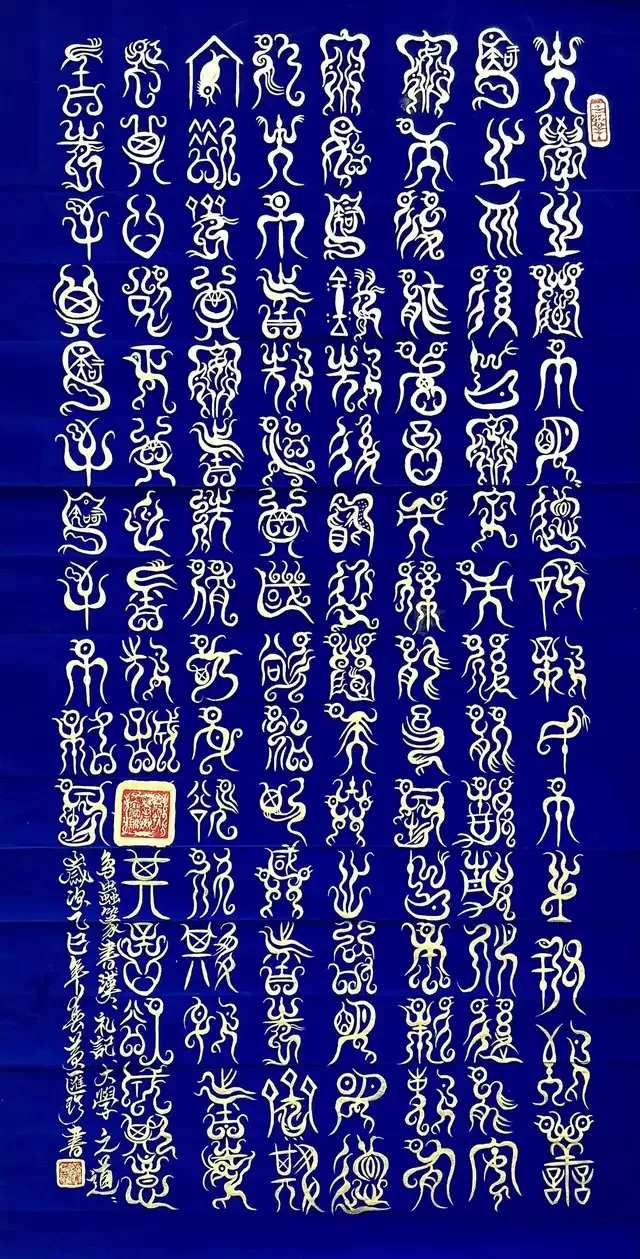 大學之道在明德在親民在止於至善
知止而后有定定而后能靜靜而后能安
安而后能慮慮而后能得物有本末事有
終始知所先後則近道矣古之欲明明德
於天下者先治其國欲治其國者先齊其
家欲齊其家者先修其身欲修其身者先
正其心欲正其心者先誠其意欲誠其
意者先致其知致知在格物
鸟蟲篆書漢、礼記 大學 之道、
歲次乙巳年春黃匯書